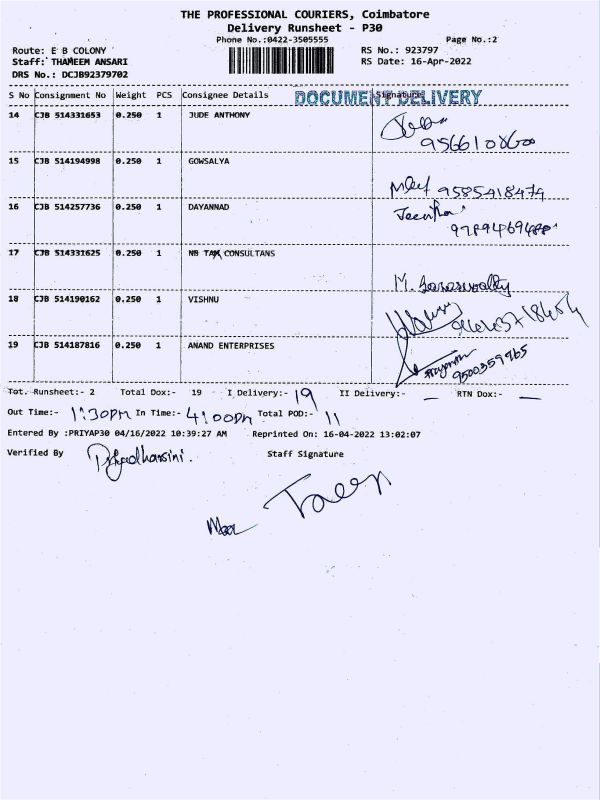 THE PROFESSIONAL COURIERS, Coimbatore
Delivery Runsheet - P30
Phone No.:0422-3505555 Page No.:2
Route: E B COLONY RS No.: 923797
Staff: THAMEEM ANSARI RS Date: 16-Apr-2022
DRS No.: DCJB92379702
S No Consignment No Weight PCS Consignee Details Signature
DOCUMENT DELIVERY
14 CJB 514331653 0.250 1 JUDE ANTHONY
15 CJB 514194998 0.250 1 GOWSALYA
9585418479
16 CJB 514257736 0.250 1 DAYANNAD
17 CJB 514331625 0.250 1 NB TAX CONSULTANS
M. Saraswathy
18 CJB 514190162 0.250 1 VISHNU
19 CJB 514187816 0.250 1 ANAND ENTERPRISES
9500359965
Tot. Runsheet:- 2 Total Dox:- 19 I Delivery:- 19 II Delivery:- — RTN Dox:- —
Out Time:- 1:30pm In Time:- 4:00pm Total POD:- 11
Entered By :PRIYAP30 04/16/2022 10:39:27 AM Reprinted On: 16-04-2022 13:02:07
Verified By Staff Signature